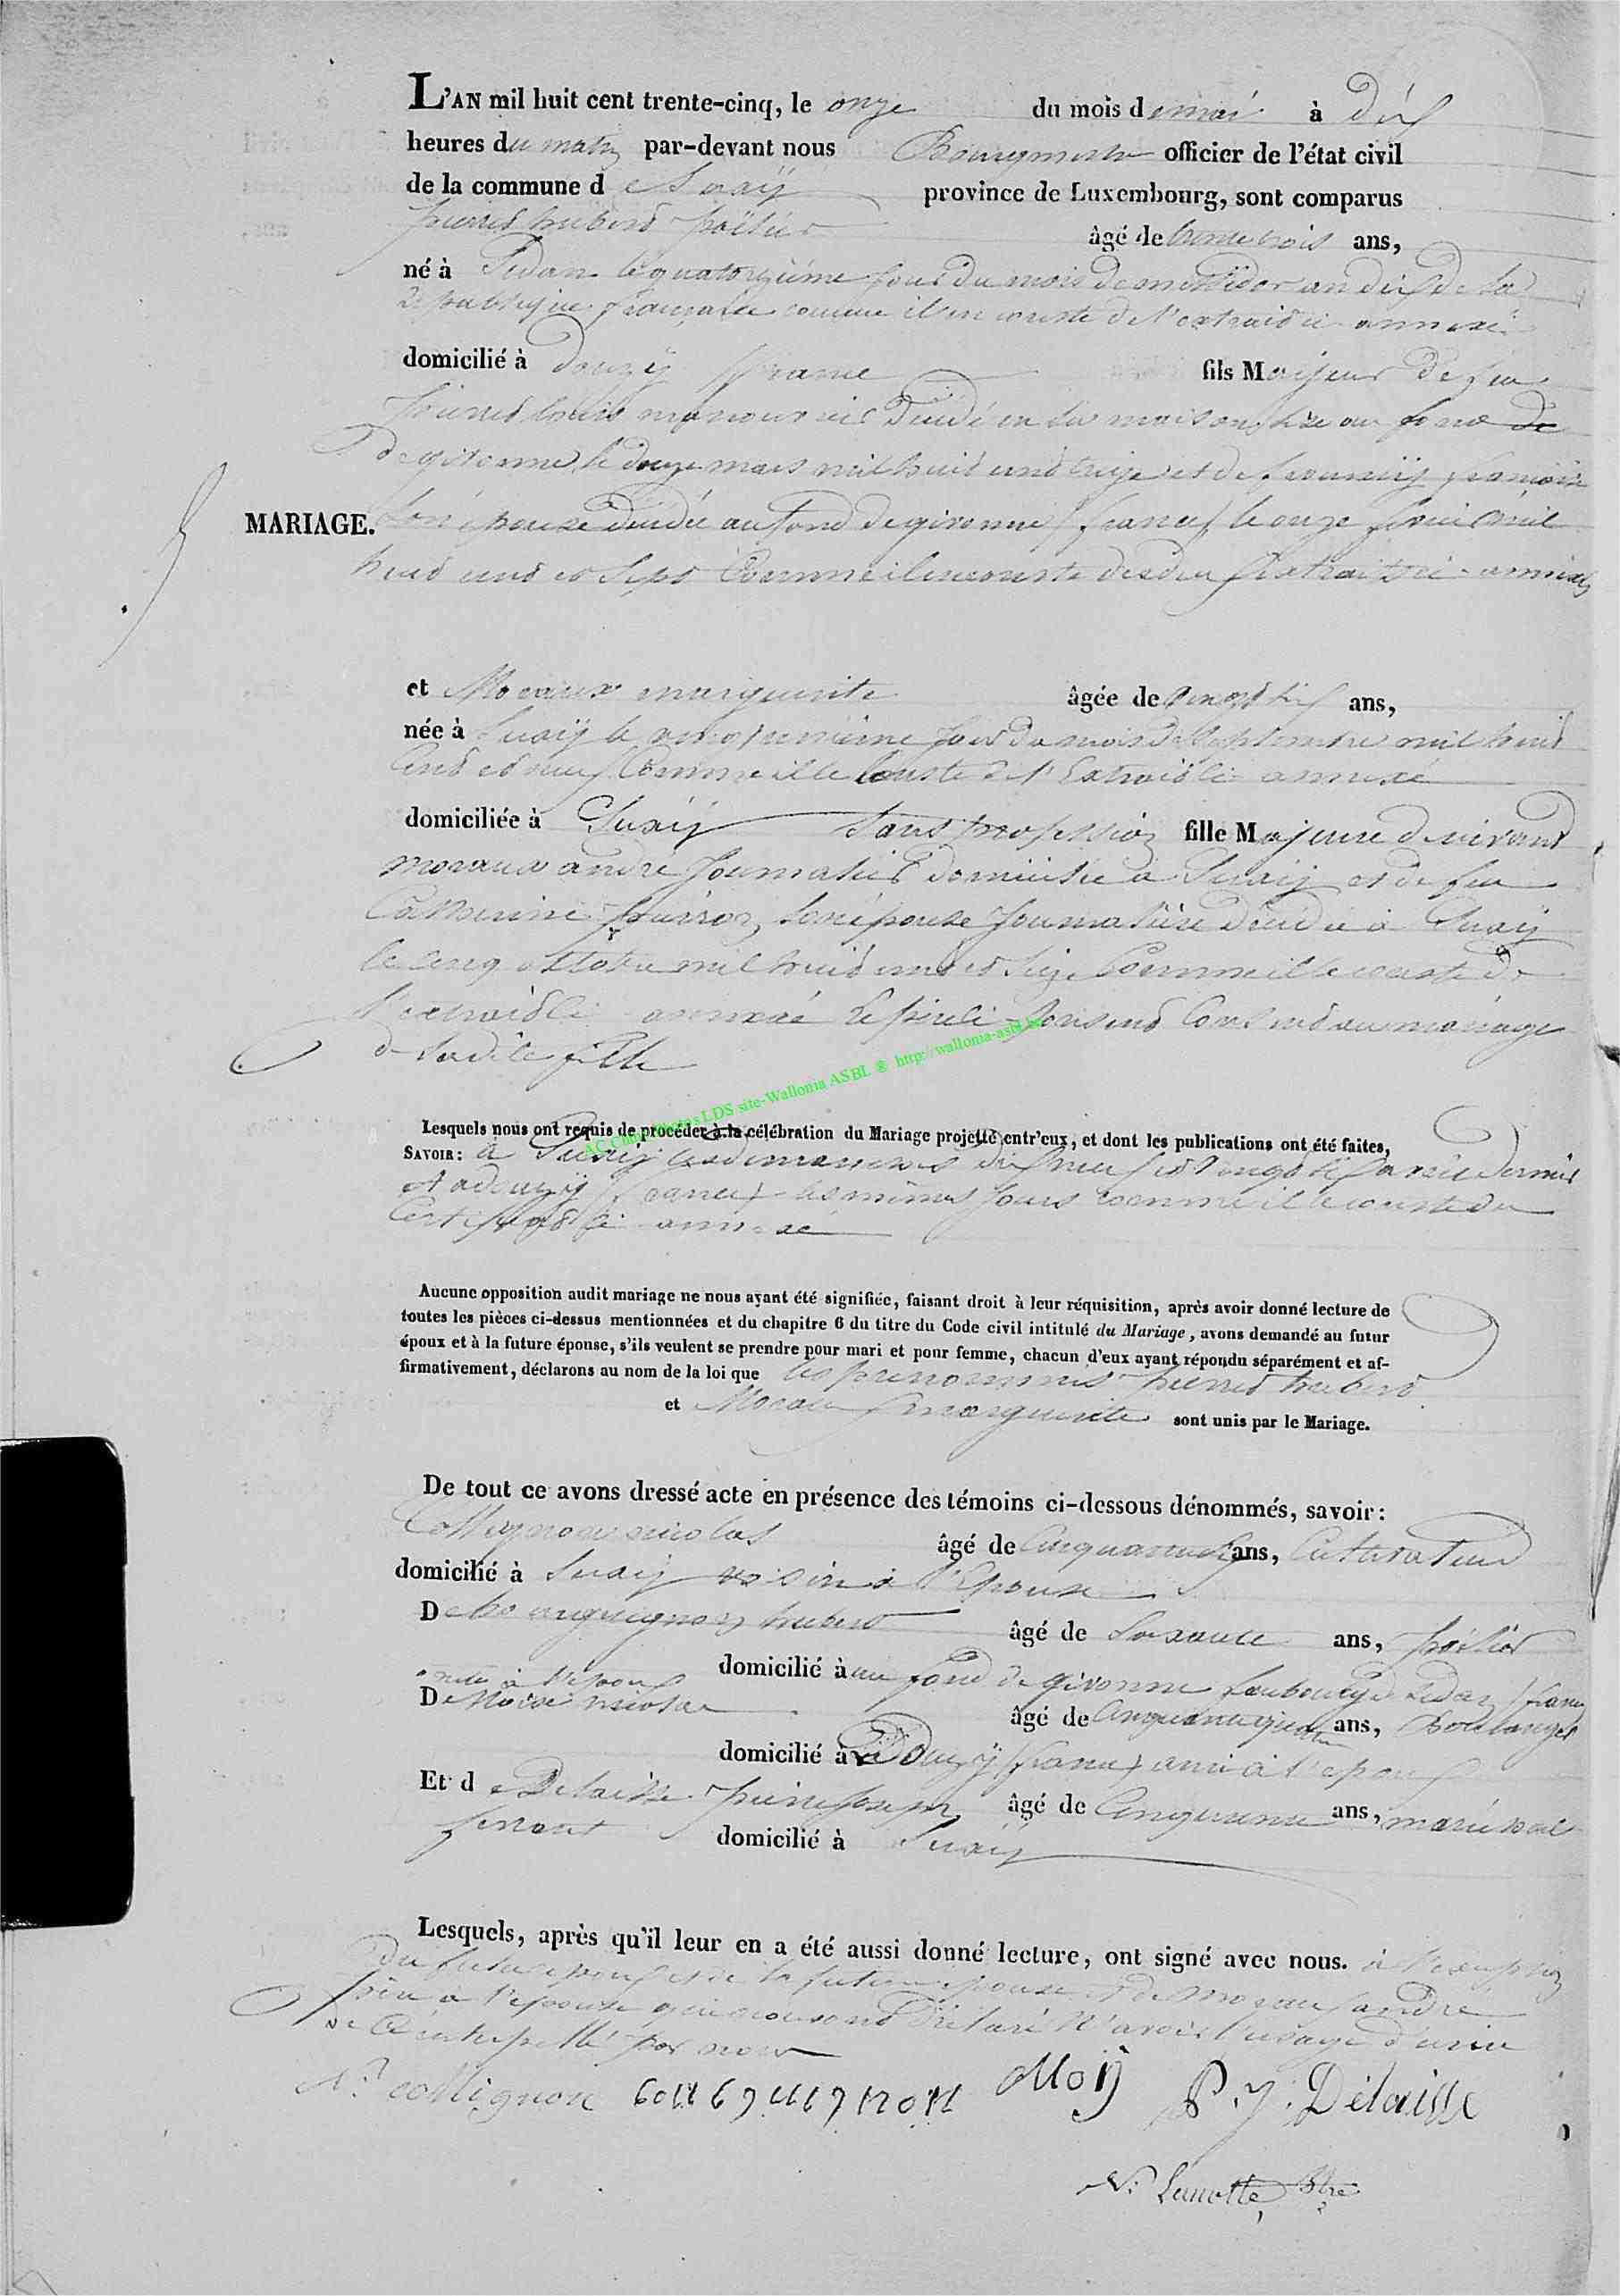 L'AN mil huit cent trente-cinq, le onze du mois de mai à dix
heures du matin par-devant nous Bourgmestre officier de l'état civil
de la commune de Suxÿ province de Luxembourg, sont comparus
pierret hubert poëlier âgé de trente trois ans,
né à Sedan le quatorzième jour du mois de messidor an dix de la
République française comme il en conste de l'extrait ci-annexé
domicilié à Douzÿ france fils Majeur de feu
pierret louis manouvrier décédé en sa maison sise au fond de
de givonne le douze mars mil huit cent treize et de françois
son épouse décédée au fond de givonne (france) le onze juin mil
huit cent et sept Comme il en conste des deux extraits ci-annexés
MARIAGE.
et Moraux marguerite âgée de vingt six ans,
née à Suxÿ le vingt jour du mois de Septembre mil huit
Cent et neuf Comme il le Conste de l'Extrait ci annexé
domiciliée à Suxÿ Sans profession fille Majeure de vivant
moraux andré Journalier domicilié à Suxÿ et de feu
Catherine pierson son épouse Journalière décédée à Suxÿ
le cinq octobre mil huit cent et seize Comme il le conste de
l'extrait ci annexé Le père ci présent Consent au mariage
de Sadite fille
Lesquels nous ont requis de procéder à la célébration du Mariage projetté entr'eux, et dont les publications ont été faites,
SAVOIR: à Suxÿ les dimanches dix neuf et vingt six avril dernier
et à douzÿ (france) les mêmes jours comme il le conste du
Certificat ci annexé
Aucune opposition audit mariage ne nous ayant été signifiée, faisant droit à leur réquisition, après avoir donné lecture de
toutes les pièces ci-dessus mentionnées et du chapitre 6 du titre du Code civil intitulé du Mariage, avons demandé au futur
époux et à la future épouse, s'ils veulent se prendre pour mari et pour femme, chacun d'eux ayant répondu séparément et af-
firmativement, déclarons au nom de la loi que les prénommés pierret hubert
et Moraux marguerite sont unis par le Mariage.
De tout ce avons dressé acte en présence des témoins ci-dessous dénommés, savoir:
Collignon nicolas âgé de Cinquante ans, Cultivateur
domicilié à Suxÿ voisin à l'Epouse
De bourguignon hubert âgé de soixante ans, poëlier
domicilié à au fond de givonne faubourg de Sedan (france)
oncle à l'époux
De Moÿ nicolas âgé de Cinquante quatre ans, Boulanger
domicilié à Douzÿ (france) ami à l'époux
Et de Delaisse pierre Joseph âgé de Cinquante ans, maréchal
ferrant domicilié à Suxÿ
Lesquels, après qu'il leur en a été aussi donné lecture, ont signé avec nous. à l'exception
du futur époux et de la future épouse et de moraux andré
père à l'épouse qui nous ont déclaré N'avoir l'usage d'écrire
de ce interpellé par nous
Ns collignon Moÿ P. J. Délaisse
N. Lanotte Btre
AC Chiny Photos LDS site-Wallonia ASBL ® http://wallonia-asbl.be